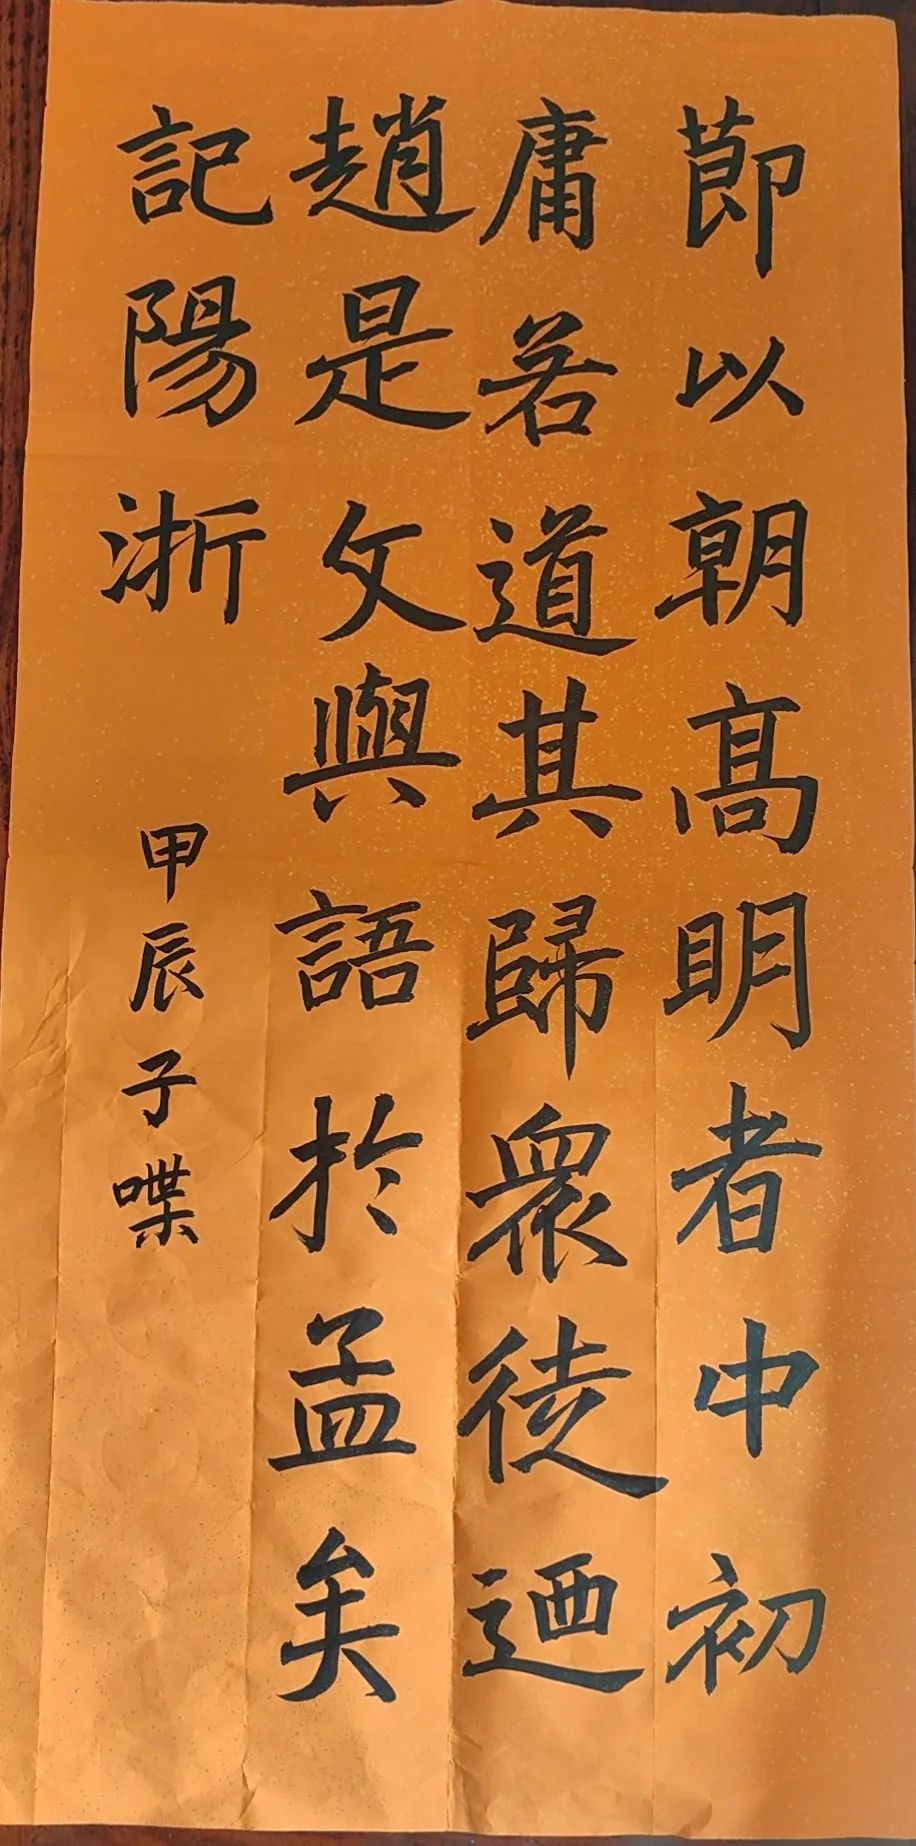 節以朝高明者中初
庸若道其歸衆徒迺
趙是文與語於孟矣
記陽浙
甲辰子喋